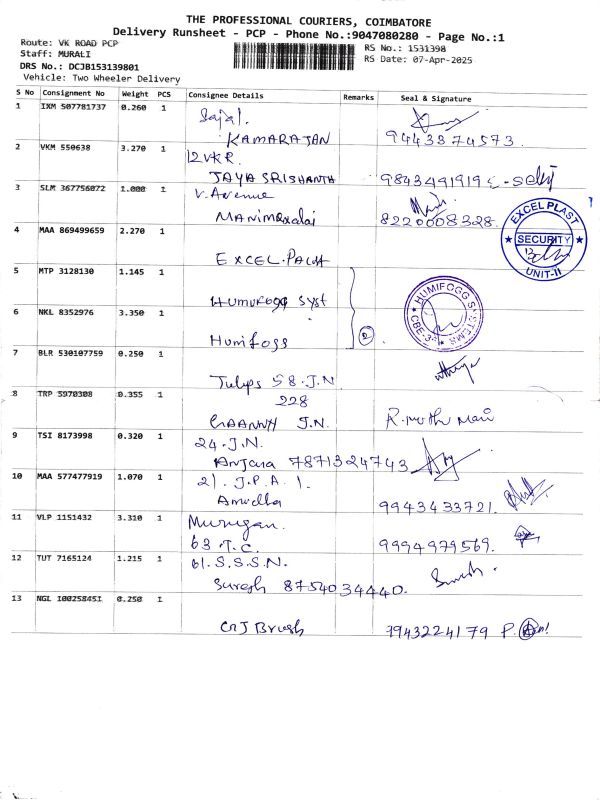 THE PROFESSIONAL COURIERS, COIMBATORE
Delivery Runsheet - PCP - Phone No.:9047080280 - Page No.:1
Route: VK ROAD PCP
Staff: MURALI
DRS No.: DCJB153139801
Vehicle: Two Wheeler Delivery
RS No.: 1531398
RS Date: 07-Apr-2025
S No Consignment No Weight PCS Consignee Details Remarks Seal & Signature
1 IXM 507781737 0.260 1
Sajal.
KAMARAJAN 9443374573
2 VKM 550638 3.270 1 12 VKR.
JAYA SRISHANTH 9843491919
3 SLM 367756072 1.000 1 V. Avenue
8220008328
4 MAA 869499659 2.270 1
EXCEL
EXCEL PLAST
SECURITY
UNIT-II
5 MTP 3128130 1.145 1
Syst
6 NKL 8352976 3.350 1
Humifogg 2
HUMIFOGG SYSTEMS
7 BLR 530107759 0.250 1
Tulips 58.J.N
8 TRP 5970308 0.355 1 228
J.N. R.
9 TSI 8173998 0.320 1 24.J.N.
Anjana 7871324743
10 MAA 577477919 1.070 1 21. J.P.A 1.
9943433721.
11 VLP 1151432 3.310 1 Murugan.
63 T.C. 9994979569.
12 TUT 7165124 1.215 1 61. S.S.S.N.
Suresh 8754034440.
13 NGL 100258451 0.250 1
Brush 7943224179 P.